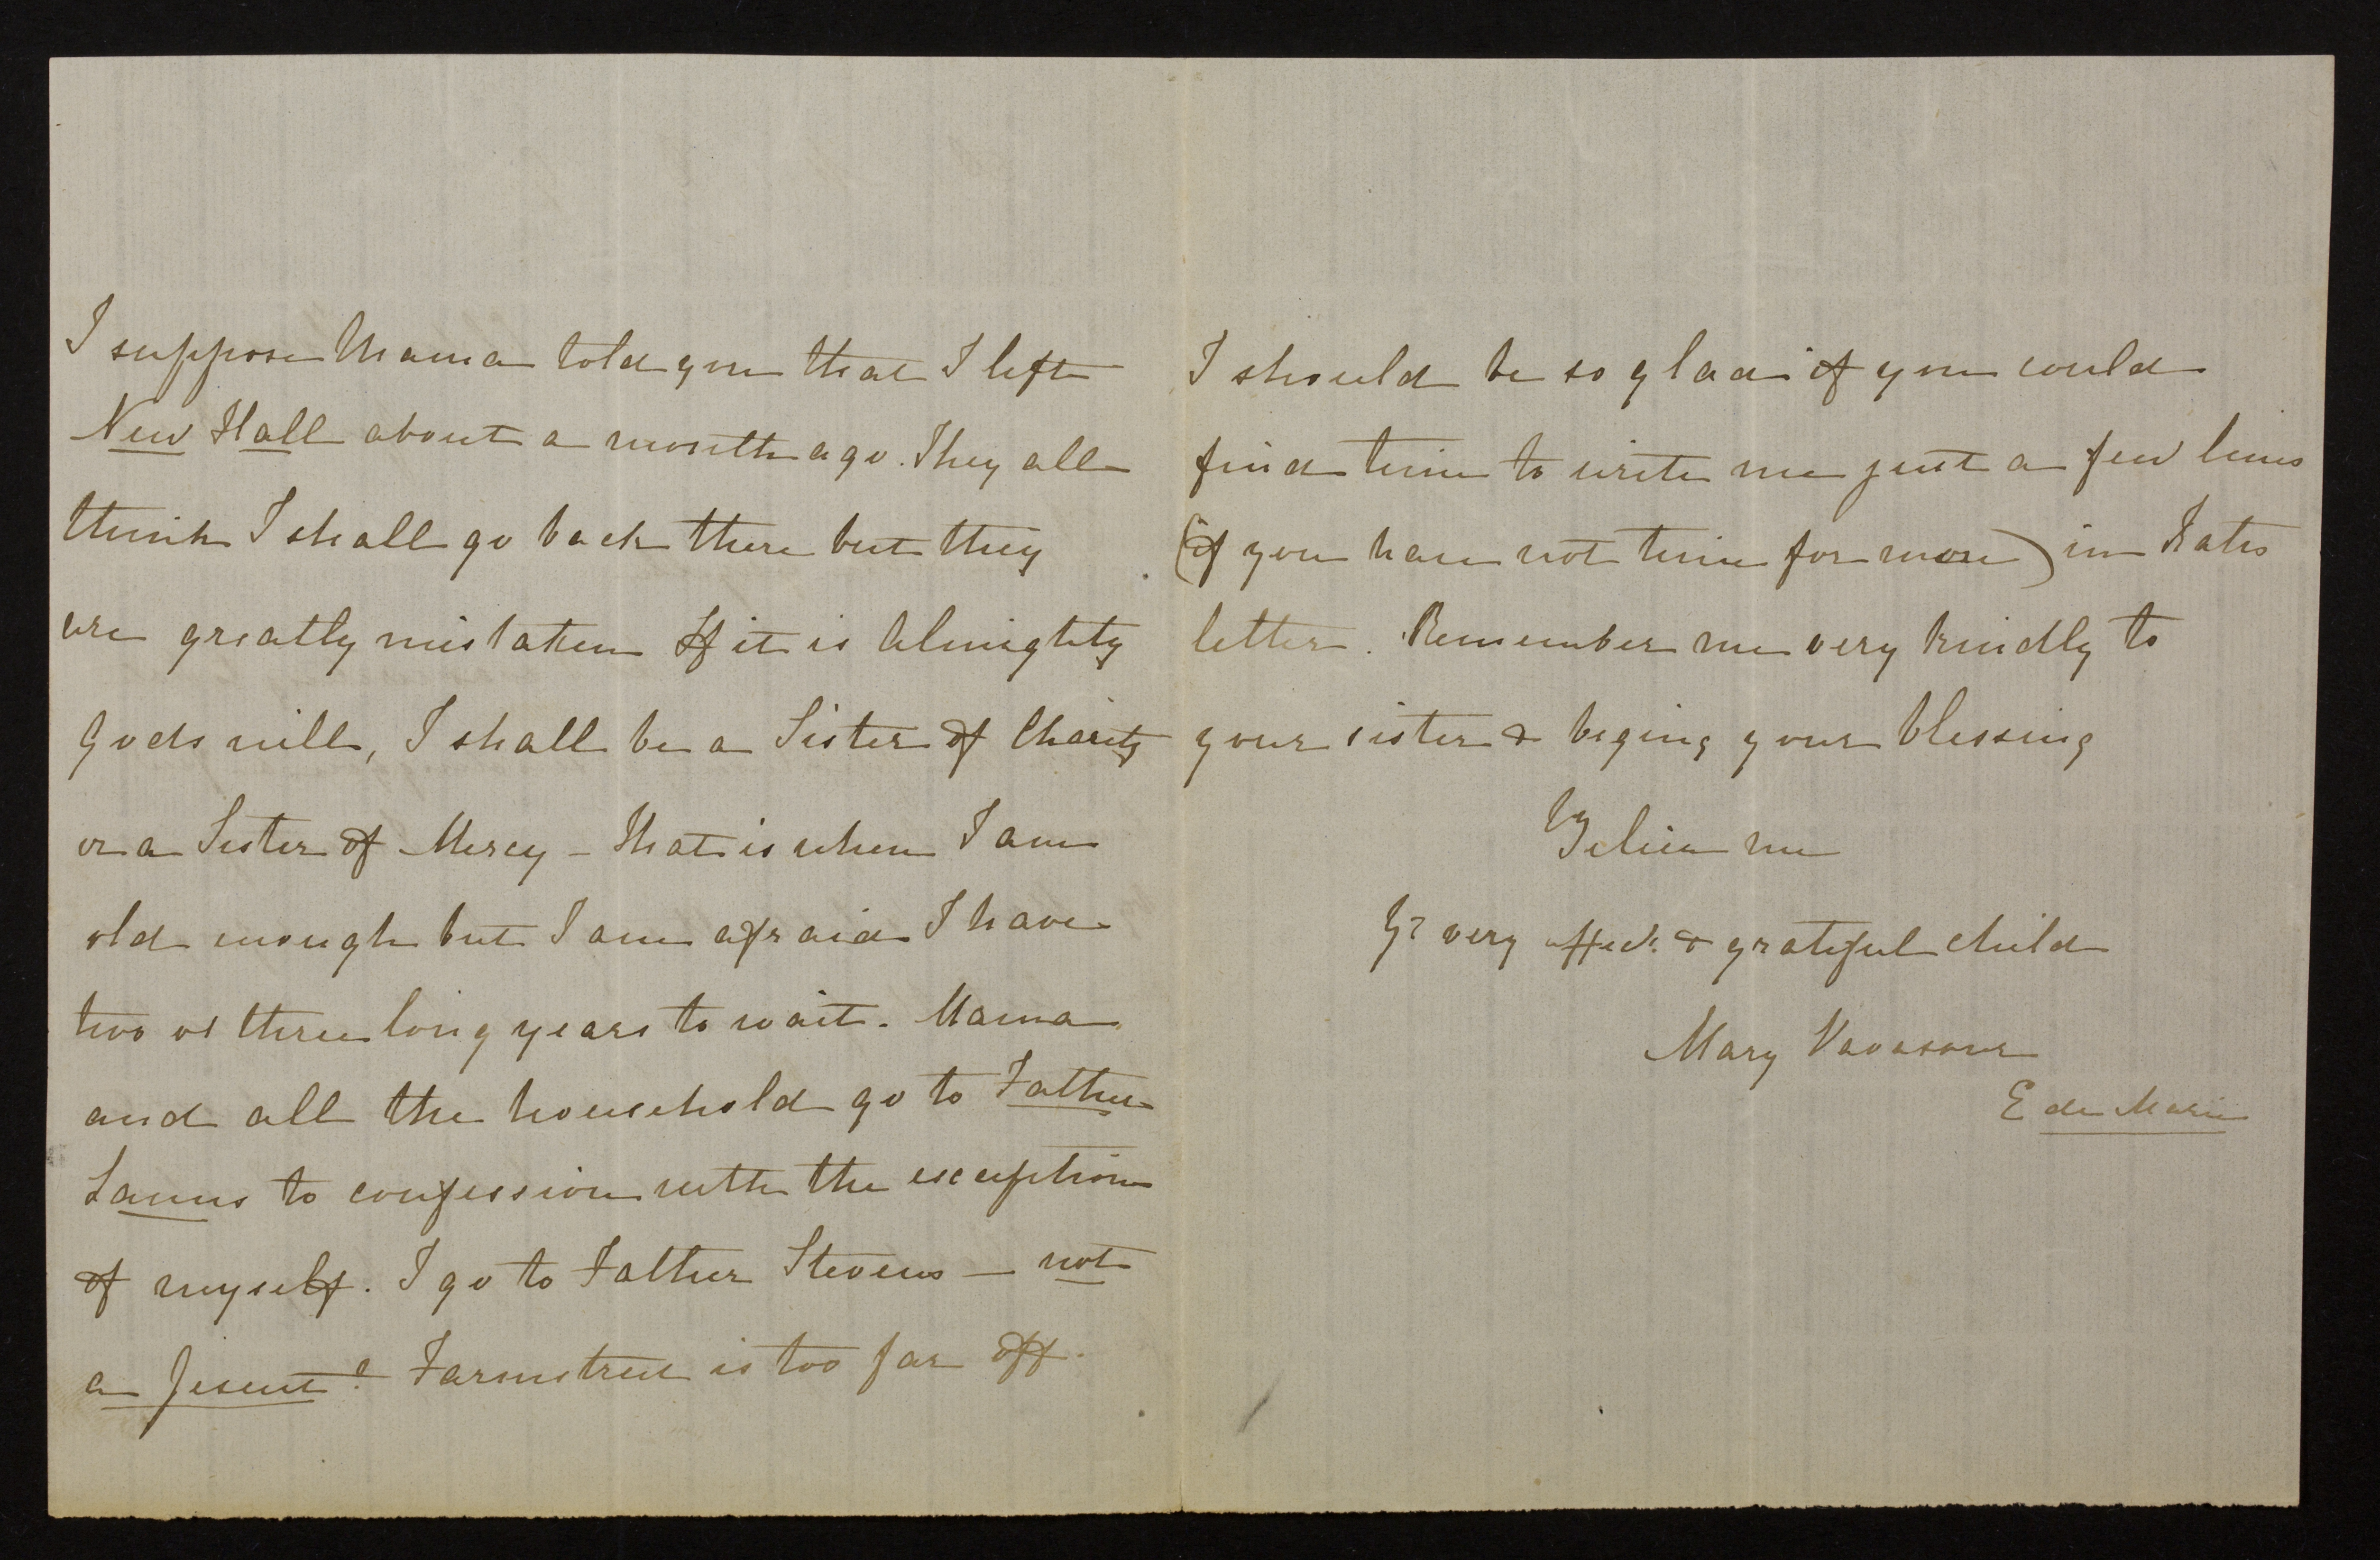 I suppose Mama told you that I left
New Hall about a month ago. They all
think I shall go back there but they
are greatly mistaken If it is Almighty
Gods will, I shall be a Sister of Charity
or a Sister of Mercy – That is when I am
old enough but I am afraid I have
two or three long years to wait. Mama
and all the household go to Father
Lanns to confession with the exception
of myself. I go to Father Stevens — not
a Jesuit! Farmstreet is too far off.
I should be so glad if you could
find time to write me just a few lines
(if you have not time for more) in Kates
letter. Remember me very kindly to
your sister & beging your blessing
Believe me
Yr very affect. & grateful child
Mary Vavasour
E de Marie